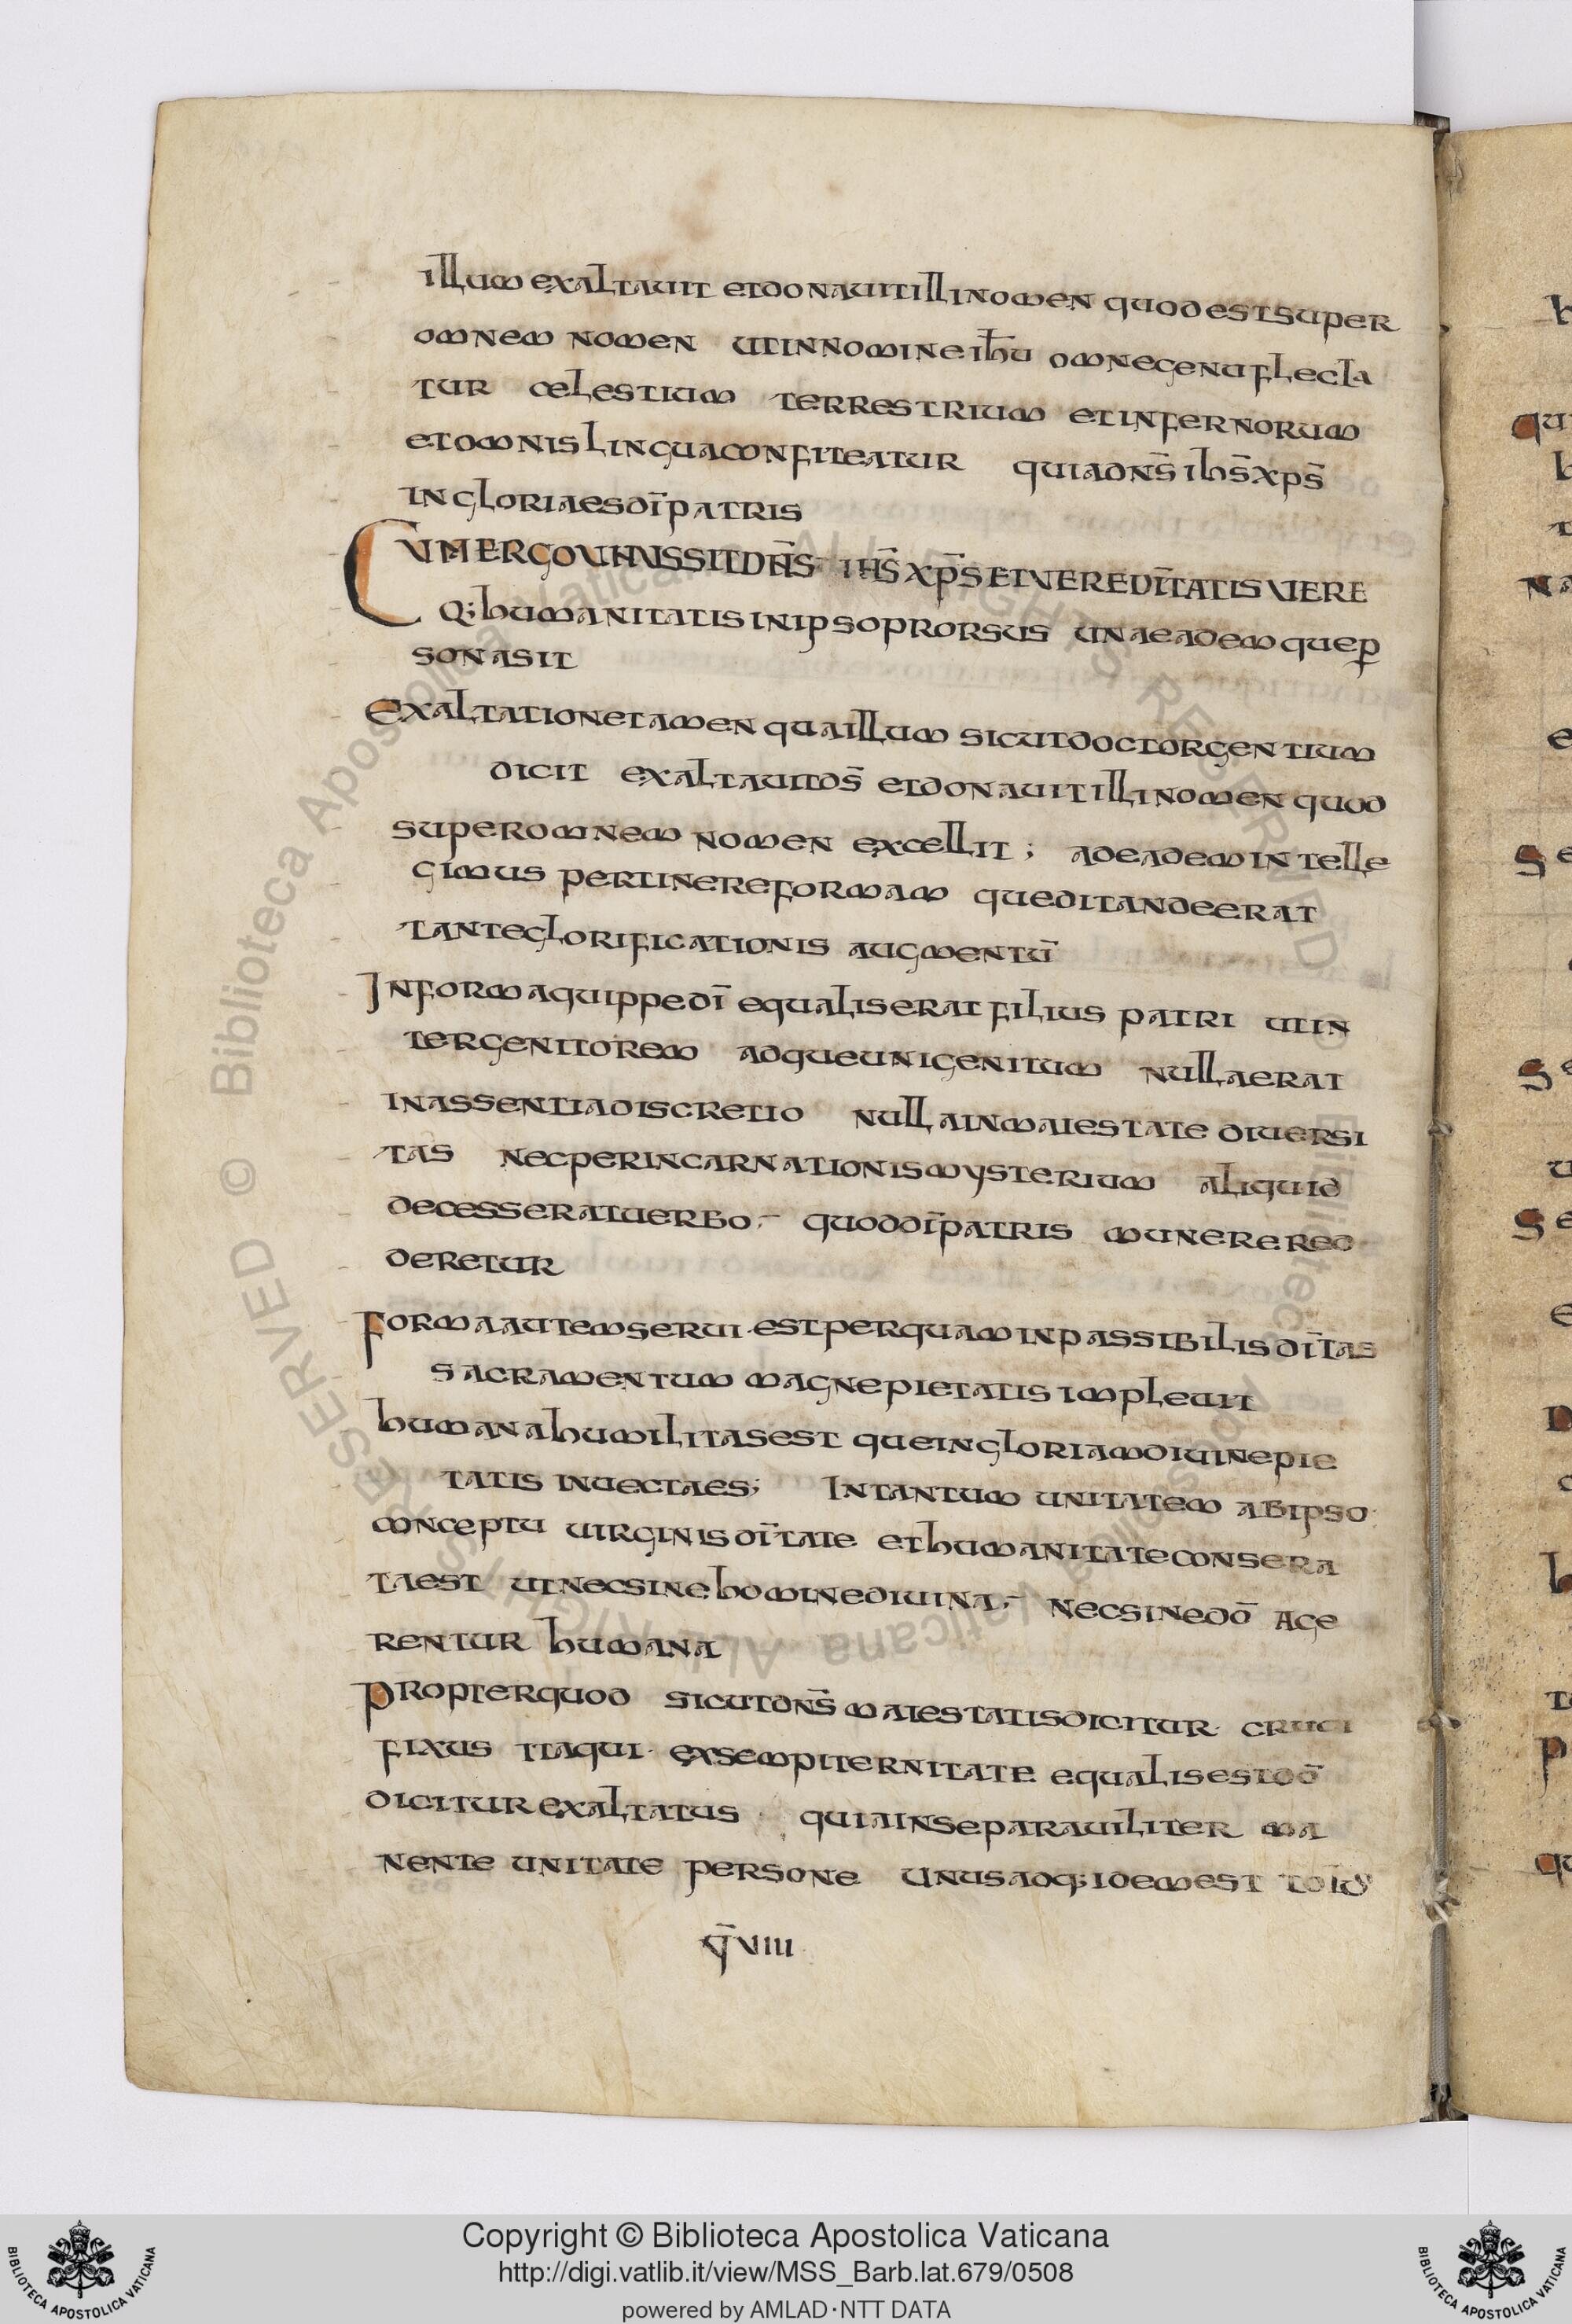 illum exaltauit et donauit illi nomen quod est super
omnem nomen ut in nomine ih̄u omne genu flecta
tur celestium terrestrium et infernorum
et omnis lingua confiteatur quia dn̄s ih̄s xp̄s
in gloria es dī patris
CVM ERGO VNVS SIT DN̄S IH̄S XP̄S ET VERE DĪTATIS VERE
Q; humanitatis in ipso prorsus una eademque ꝑ
sona sit
Exaltatione tamen qua illum sicut doctor gentium
dicit exaltauit ds̄ et donauit illi nomen quod
super omnem nomen excellit; ad eadem intelle
gimus pertinere formam que ditande erat
tante glorificationis augmentū
In forma quippe dī equalis erat filius patri ut in
ter genitorem adque unigenitum nulla erat
in assentia discretio nulla in maiestate diuersi
tas nec per incarnationis mysterium aliquid
decesserat uerbo quod dī patris munere red
deretur
Forma autem serui est per quam inpassibilis dītas
sacramentum magne pietatis impleuit
humana humilitas est que in gloriam diuine pie
tatis inuecta es; In tantum unitatem ab ipso
conceptu uirginis dītate et humanitate consera
ta est ut nec sine homine diuina nec sine dō age
rentur humana
Propter quod sicut dn̄s maiestatis dicitur cruci
fixus ita qui ex sempiternitate equalis est dō
dicitur exaltatus quia inseparauiliter ma
nente unitate persone Unus adq; idem est
q̄ VIII
Copyright © Biblioteca Apostolica Vaticana
http://digi.vatlib.it/view/MSS_Barb.lat.679/0508
powered by AMLAD·NTT DATA
BIBLIOTECA APOSTOLICA VATICANA
BIBLIOTECA APOSTOLICA VATICANA